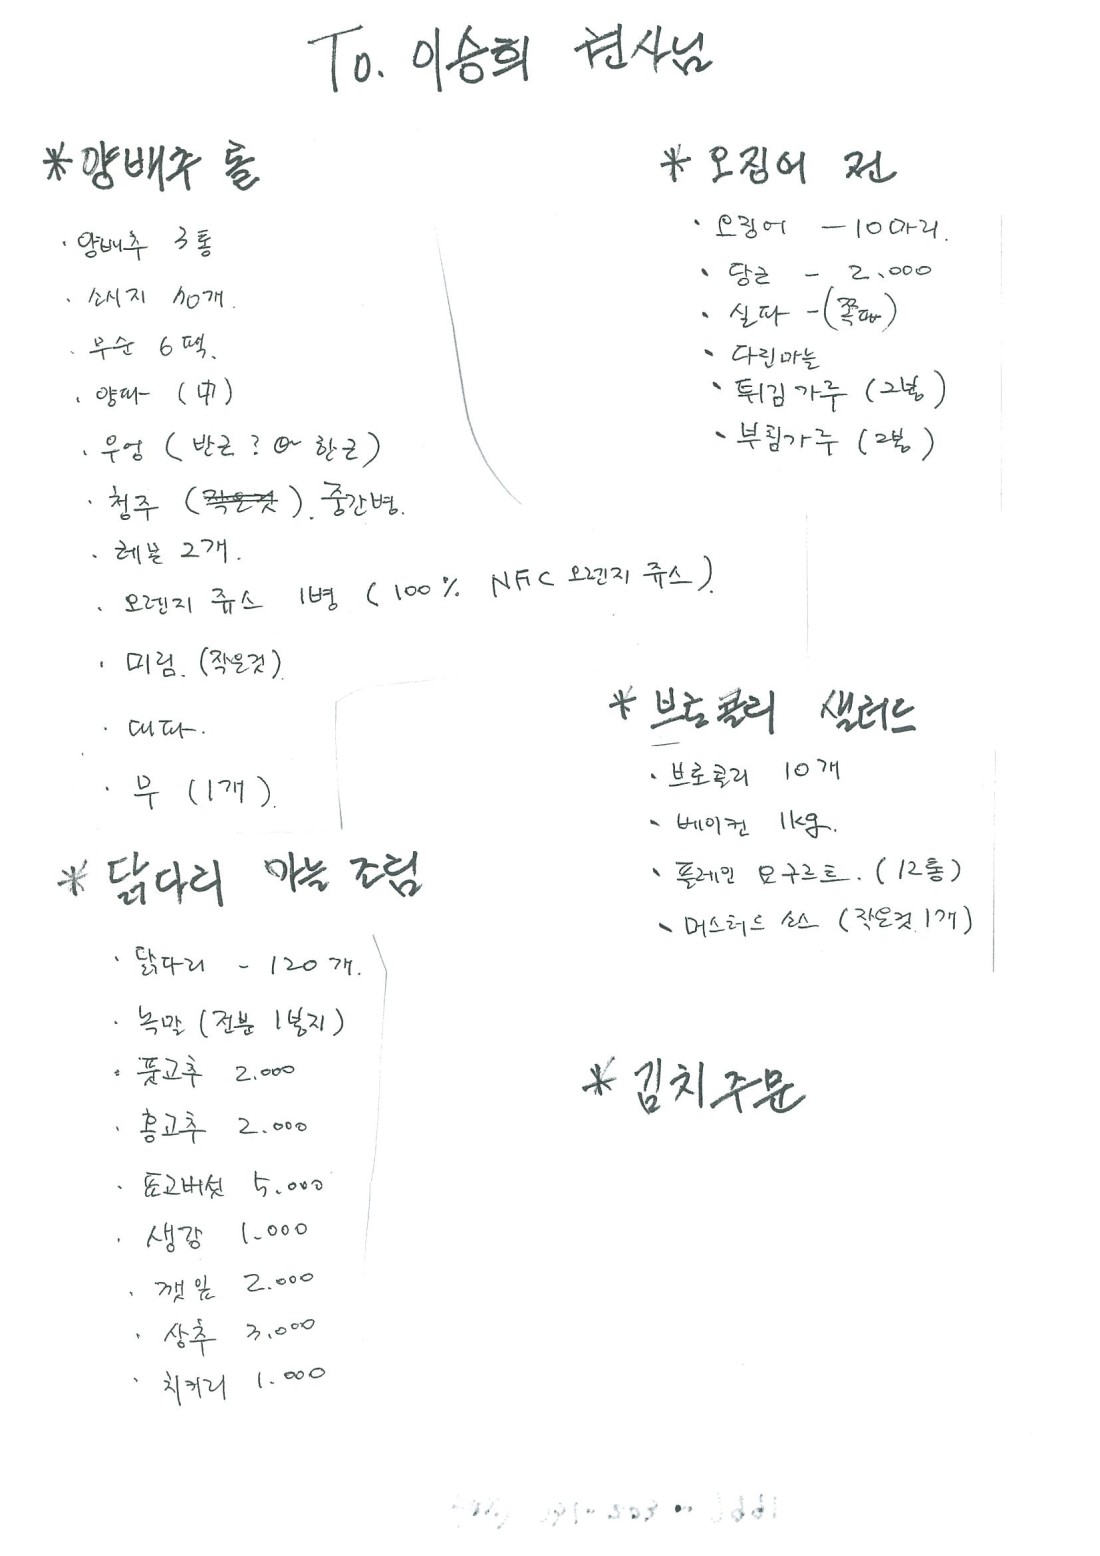 To. 이승희 권사님
*양배추 롤
· 양배추 3통
· 소시지 40개.
· 무순 6팩.
· 양파 (中)
· 우엉 (반근? 한근)
· 청주 (작은것). 중간병.
· 레몬 2개.
· 오렌지 쥬스 1병 (100% NFC 오렌지 쥬스).
· 미림. (작은것)
· 대파.
· 무 (1개).
* 닭다리 마늘 조림
· 닭다리 - 120개.
· 녹말 (전분 1봉지)
· 풋고추 2.000
· 홍고추 2.000
· 표고버섯 5.000
· 생강 1.000
· 깻잎 2.000
· 상추 3.000
· 치커리 1.000
* 오징어 전
· 오징어 - 10마리.
· 당근 - 2.000
· 실파 - (쪽파)
· 다진마늘
· 튀김가루 (2봉)
· 부침가루 (2봉)
* 브로콜리 샐러드
· 브로콜리 10개
· 베이컨 1kg.
· 플레인 요구르트. (12통)
· 머스터드 소스 (작은것 1개)
* 김치주문